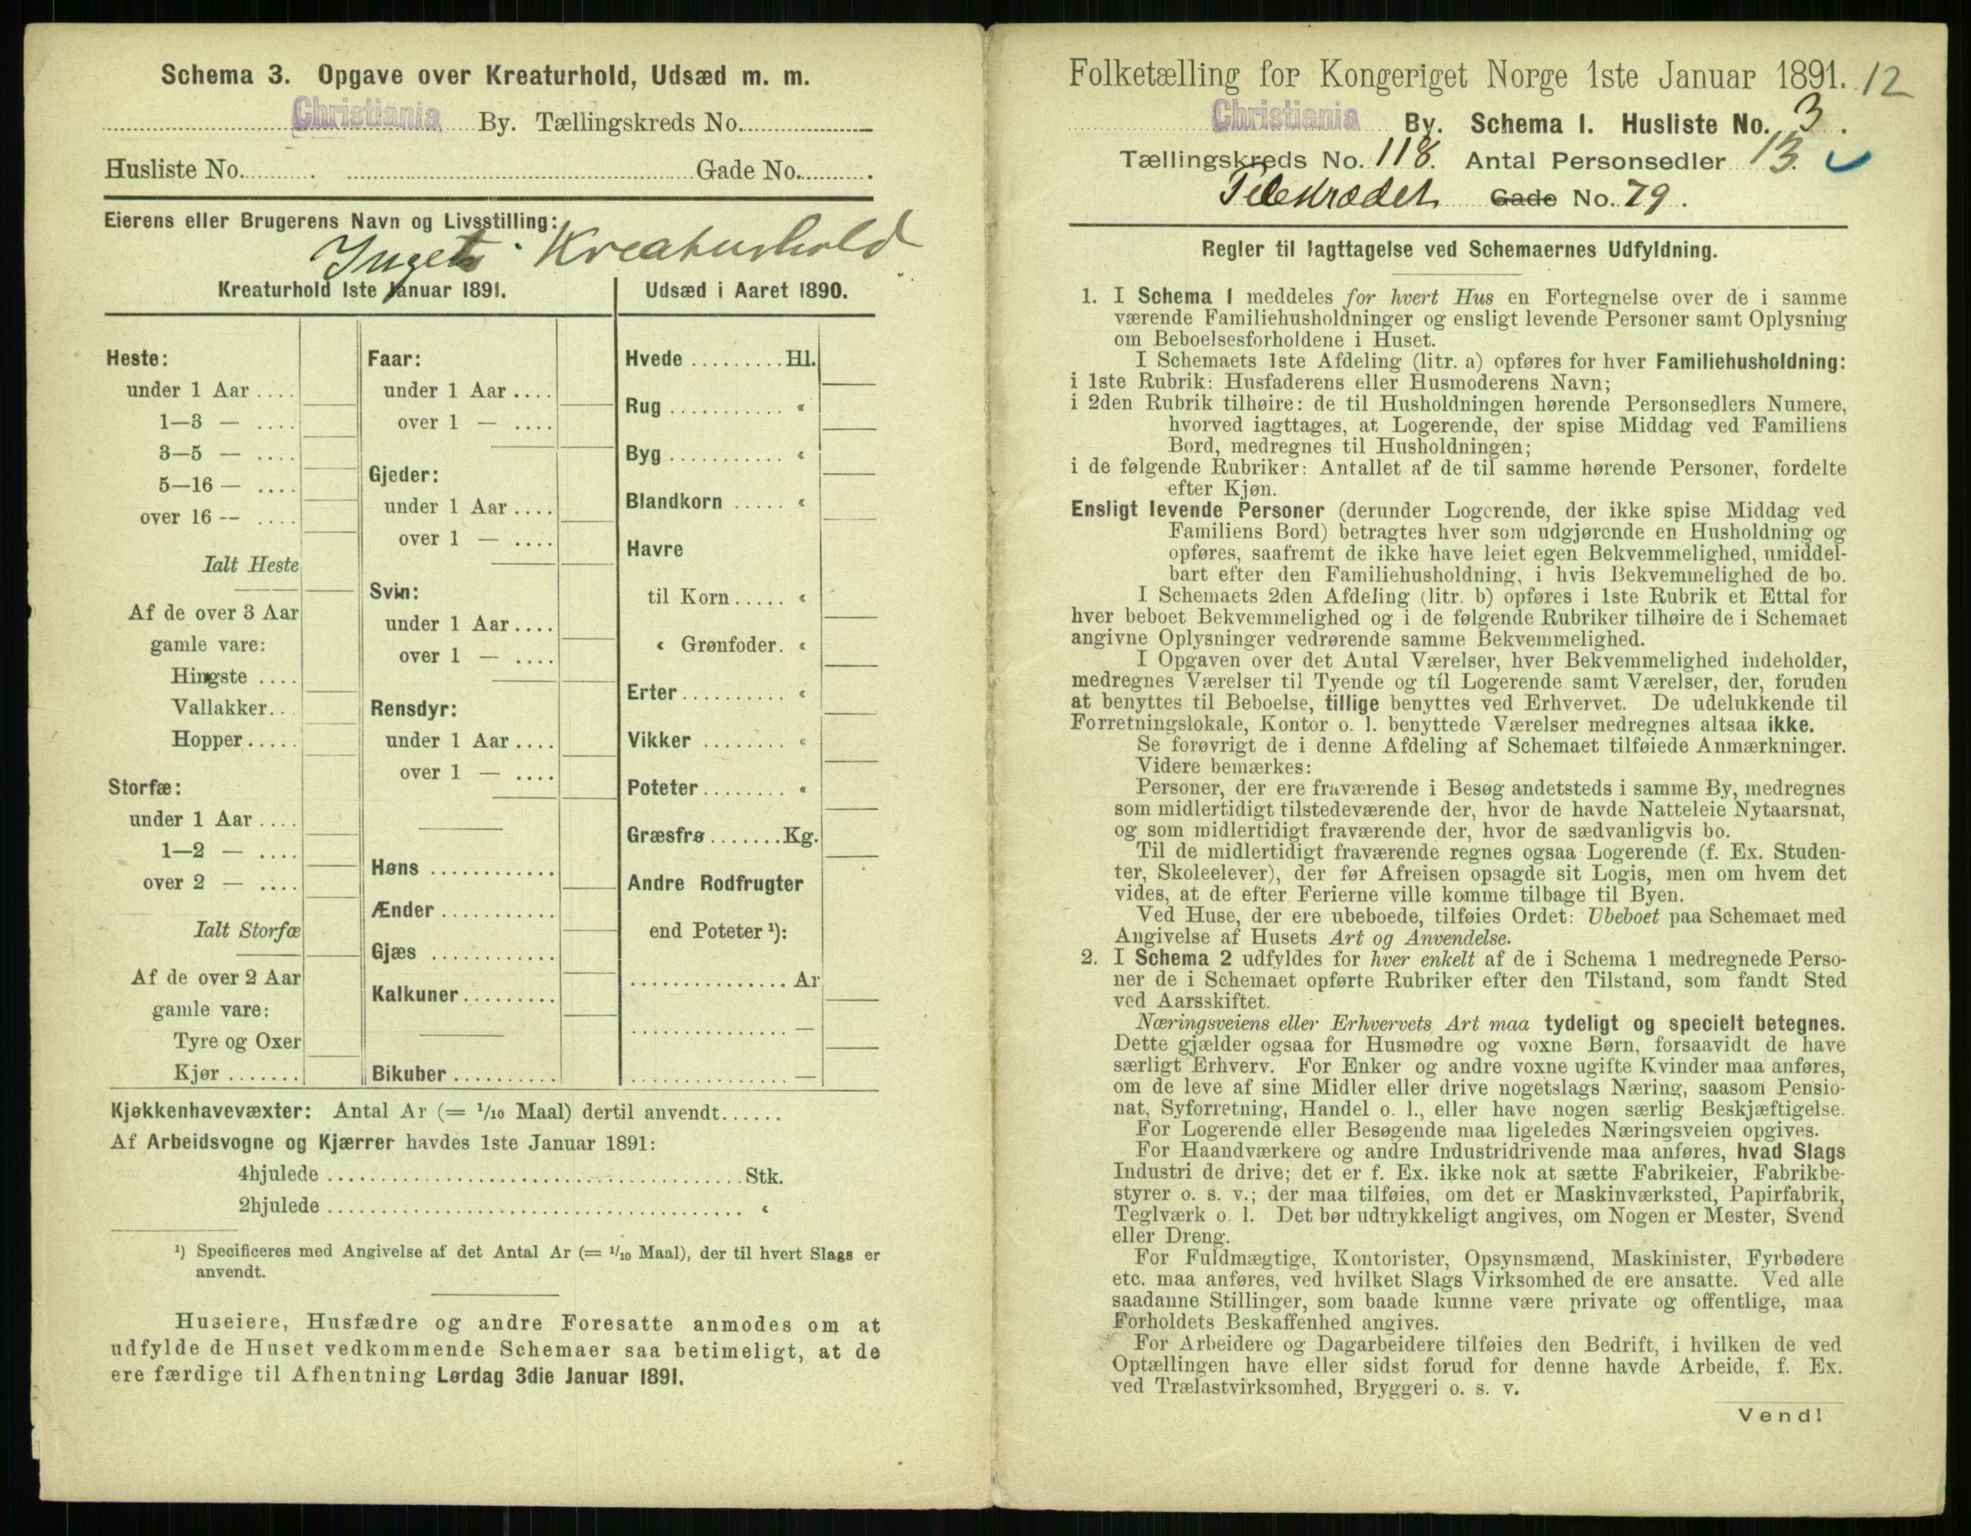 Schema 3. Opgave over Kreaturhold, Udsæd m. m.
Christiania By. Tællingskreds No.
Husliste No. . Gade No. .
Eierens eller Brugerens Navn og Livsstilling:
Inget Kreaturhold
Kreaturhold 1ste Januar 1891.
Heste:
under 1 Aar ....
1—3 — ....
3—5 — ....
5—16 — ....
over 16 -- ....
Ialt Heste
Af de over 3 Aar
gamle vare:
Hingste ....
Vallakker...
Hopper.....
Storfæ:
under 1 Aar ....
1—2 — ....
over 2 — ....
Ialt Storfæ
Af de over 2 Aar
gamle vare:
Tyre og Oxer
Kjør .......
Faar:
under 1 Aar ....
over 1 — ....
Gjeder:
under 1 Aar ....
over 1 — ....
Svin:
under 1 Aar ....
over 1 — ....
Rensdyr:
under 1 Aar ....
over 1 — ....
Høns ............
Ænder ...........
Gjæs ............
Kalkuner.........
Bikuber ..........
Udsæd i Aaret 1890.
Hvede .........Hl.
Rug ........... «
Byg ........... «
Blandkorn ..... «
Havre
til Korn..... «
« Grønfoder. «
Erter.......... «
Vikker ........ «
Poteter........ «
Græsfrø .......Kg.
Andre Rodfrugter
end Poteter ¹):
............... Ar
............... —
............... —
Kjøkkenhavevæxter: Antal Ar (= 1/10 Maal) dertil anvendt......
Af Arbeidsvogne og Kjærrer havdes 1ste Januar 1891:
4hjulede ....................................... Stk.
2hjulede ....................................... «
¹) Specificeres med Angivelse af det Antal Ar (= 1/10 Maal), der til hvert Slags er
anvendt.
Huseiere, Husfædre og andre Foresatte anmodes om at
udfylde de Huset vedkommende Schemaer saa betimeligt, at de
ere færdige til Afhentning Lørdag 3die Januar 1891.
Folketælling for Kongeriget Norge 1ste Januar 1891. 12
Christiania By. Schema 1. Husliste No. 3.
Tællingskreds No. 118. Antal Personsedler 13.
Gade No. 79.
Regler til Iagttagelse ved Schemaernes Udfyldning.
1. I Schema 1 meddeles for hvert Hus en Fortegnelse over de i samme
værende Familiehusholdninger og ensligt levende Personer samt Oplysning
om Beboelsesforholdene i Huset.
I Schemaets 1ste Afdeling (litr. a) opføres for hver Familiehusholdning:
i 1ste Rubrik: Husfaderens eller Husmoderens Navn;
i 2den Rubrik tilhøire: de til Husholdningen hørende Personsedlers Numere,
hvorved iagttages, at Logerende, der spise Middag ved Familiens
Bord, medregnes til Husholdningen;
i de følgende Rubriker: Antallet af de til samme hørende Personer, fordelte
efter Kjøn.
Ensligt levende Personer (derunder Logerende, der ikke spise Middag ved
Familiens Bord) betragtes hver som udgjørende en Husholdning og
opføres, saafremt de ikke have leiet egen Bekvemmelighed, umiddel-
bart efter den Familiehusholdning, i hvis Bekvemmelighed de bo.
I Schemaets 2den Afdeling (litr. b) opføres i 1ste Rubrik et Ettal for
hver beboet Bekvemmelighed og i de følgende Rubriker tilhøire de i Schemaet
angivne Oplysninger vedrørende samme Bekvemmelighed.
I Opgaven over det Antal Værelser, hver Bekvemmelighed indeholder,
medregnes Værelser til Tyende og til Logerende samt Værelser, der, foruden
at benyttes til Beboelse, tillige benyttes ved Erhvervet. De udelukkende til
Forretningslokale, Kontor o. l. benyttede Værelser medregnes altsaa ikke.
Se forøvrigt de i denne Afdeling af Schemaet tilføiede Anmærkninger.
Videre bemærkes:
Personer, der ere fraværende i Besøg andetsteds i samme By, medregnes
som midlertidigt tilstedeværende der, hvor de havde Natteleie Nytaarsnat,
og som midlertidigt fraværende der, hvor de sædvanligvis bo.
Til de midlertidigt fraværende regnes ogsaa Logerende (f. Ex. Studen-
ter, Skoleelever), der før Afreisen opsagde sit Logis, men om hvem det
vides, at de efter Ferierne ville komme tilbage til Byen.
Ved Huse, der ere ubeboede, tilføies Ordet: Ubeboet paa Schemaet med
Angivelse af Husets Art og Anvendelse.
2. I Schema 2 udfyldes for hver enkelt af de i Schema 1 medregnede Perso-
ner de i Schemaet opførte Rubriker efter den Tilstand, som fandt Sted
ved Aarsskiftet.
Næringsveiens eller Erhvervets Art maa tydeligt og specielt betegnes.
Dette gjælder ogsaa for Husmødre og voxne Børn, forsaavidt de have
særligt Erhverv. For Enker og andre voxne ugifte Kvinder maa anføres,
om de leve af sine Midler eller drive nogetslags Næring, saasom Pensio-
nat, Syforretning, Handel o. l., eller have nogen særlig Beskjæftigelse.
For Logerende eller Besøgende maa ligeledes Næringsveien opgives.
For Haandværkere og andre Industridrivende maa anføres, hvad Slags
Industri de drive; det er f. Ex. ikke nok at sætte Fabrikeier, Fabrikbe-
styrer o. s. v.; der maa tilføies, om det er Maskinværksted, Papirfabrik,
Teglværk o. l. Det bør udtrykkeligt angives, om Nogen er Mester, Svend
eller Dreng.
For Fuldmægtige, Kontorister, Opsynsmænd, Maskinister, Fyrbødere
etc. maa anføres, ved hvilket Slags Virksomhed de ere ansatte. Ved alle
saadanne Stillinger, som baade kunne være private og offentlige, maa
Forholdets Beskaffenhed angives.
For Arbeidere og Dagarbeidere tilføies den Bedrift, i hvilken de ved
Optællingen have eller sidst forud for denne havde Arbeide, f. Ex.
ved Trælastvirksomhed, Bryggeri o. s. v.
Vend!